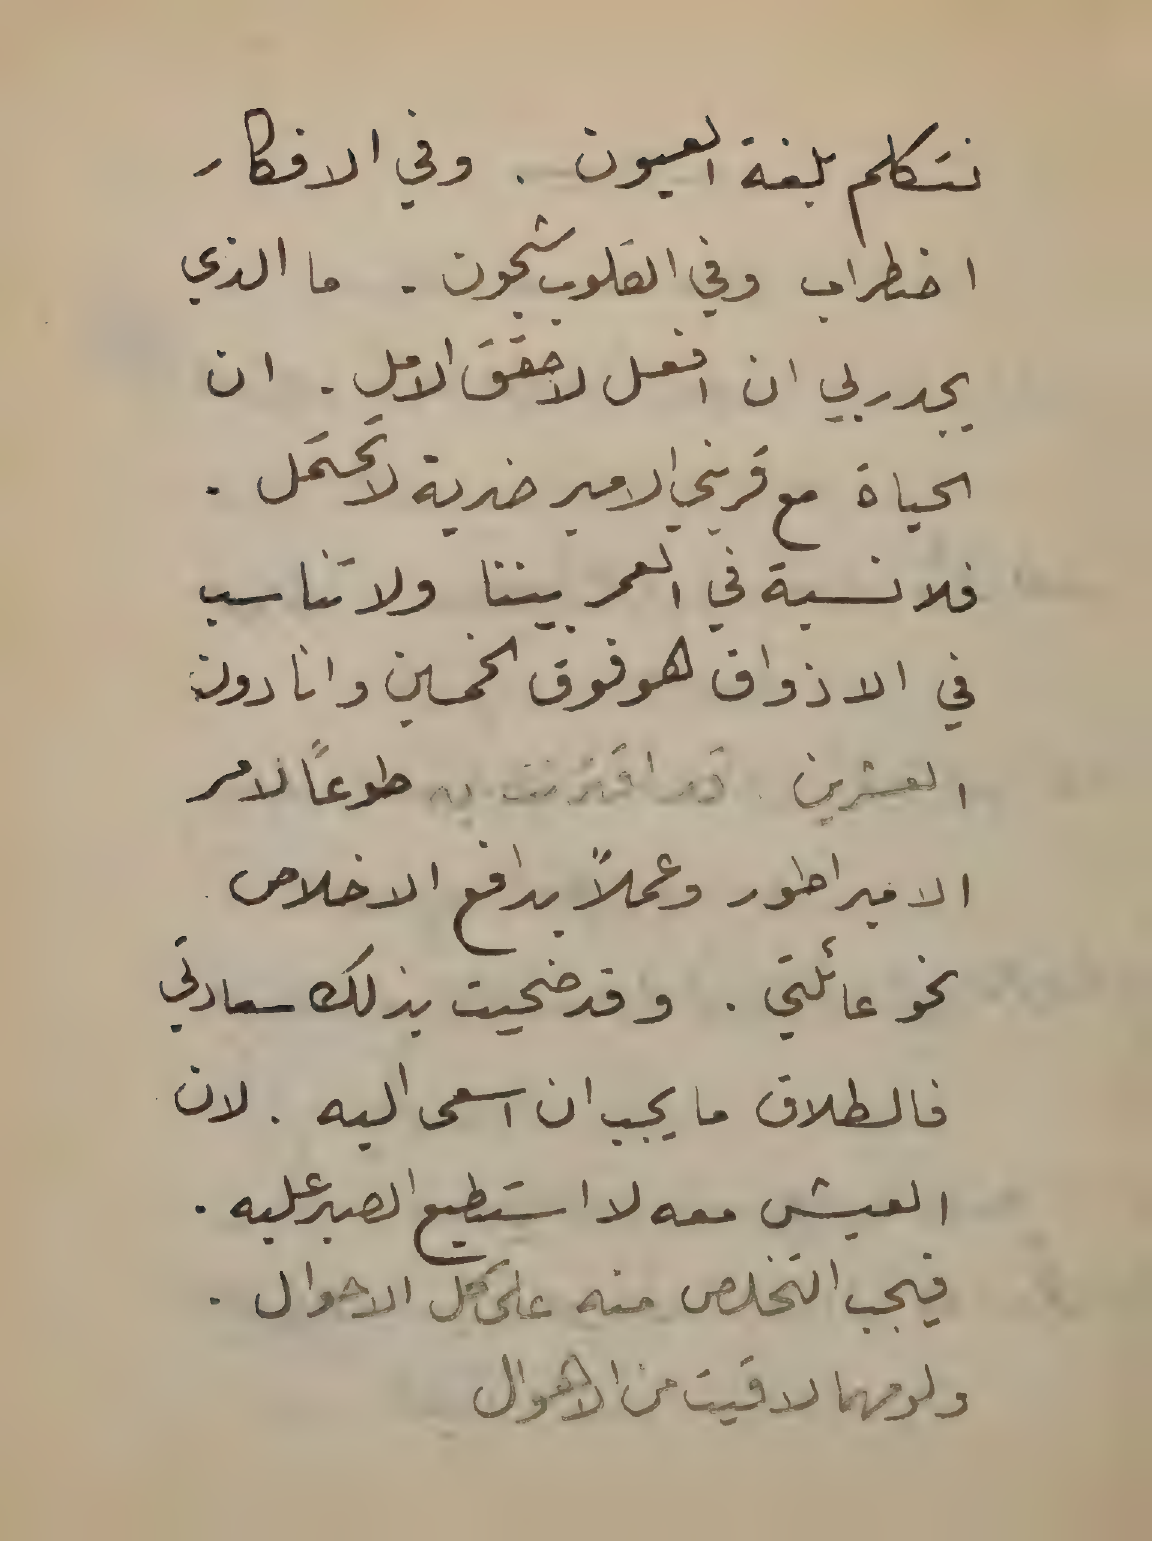 نتكلم بلغة العيون . وفي الافكار
اضطراب وفي القلوب شجون . ما الذي
يجدر بي ان افعل لاحقق الامل . ان
الحياة مع قريني الامير ضربة لا تحتمل .
فلا نسبة في العمر بيننا ولا تناسب
في الاذواق فهو فوق الخمسين وانا دون
العشرين . قد اقترنت به طوعاً لامر
الامبراطور وعملاً بدافع الاخلاص
نحو عائلتي . وقد ضحيت بذلك سعادتي
فالطلاق ما يجب ان اسعى اليه . لان
العيش معه لا استطيع الصبر عليه .
فيجب التخلص منه على كل الاحوال .
ولو مهما لاقيت من الاهوال